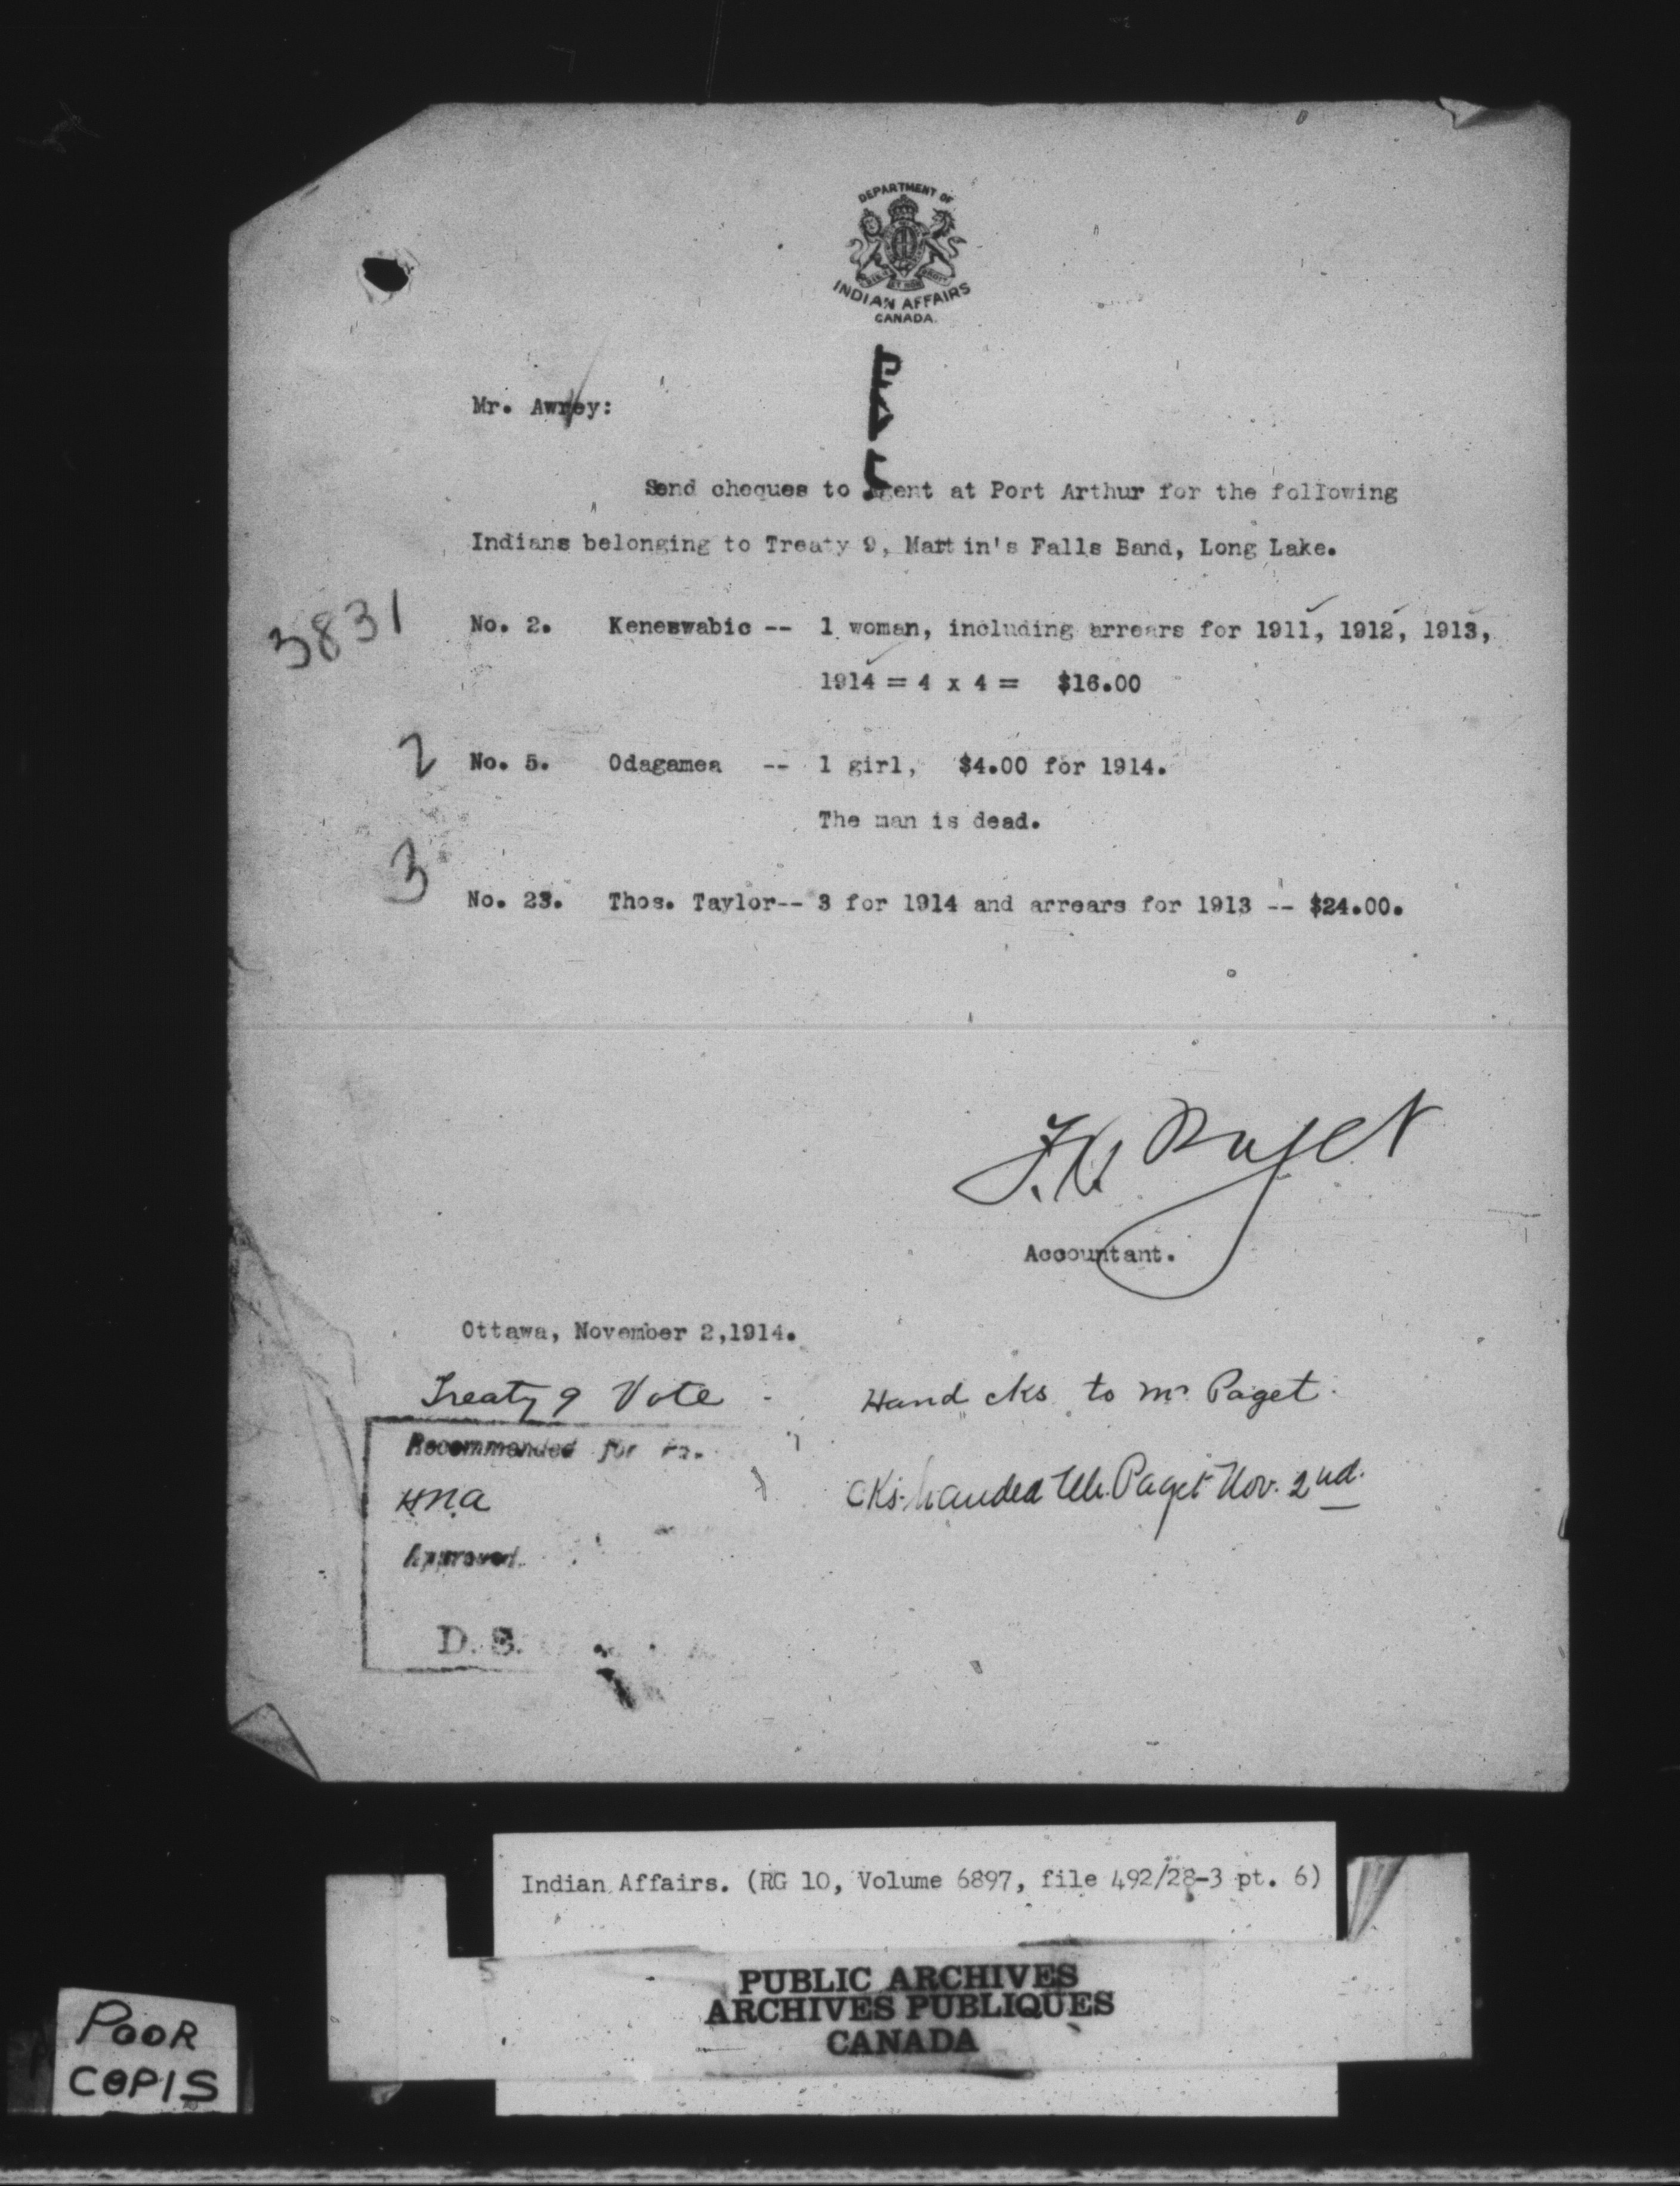 DEPARTMENT OF
INDIAN AFFAIRS
CANADA.
Mr. Awrey:
Send cheques to Agent at Port Arthur for the following
Indians belonging to Treaty 9, Martin's Falls Band, Long Lake.
3831 No. 2. Keneswabic -- 1 woman, including arrears for 1911, 1912, 1913,
1914 = 4 x 4 = $16.00
2 No. 5. Odagamea -- 1 girl, $4.00 for 1914.
The man is dead.
3 No. 23. Thos. Taylor-- 3 for 1914 and arrears for 1913 -- $24.00.
F.H. Paget
Accountant.
Ottawa, November 2,1914.
Treaty 9 Vote - Hand cks to Mr Paget.
Recommended for
HNA
cks. handed Mr. Paget Nov. 2nd.
Approved.
D. S.
Indian Affairs. (RG 10, Volume 6897, file 492/28-3 pt. 6)
PUBLIC ARCHIVES
ARCHIVES PUBLIQUES
CANADA
POOR
COPIS